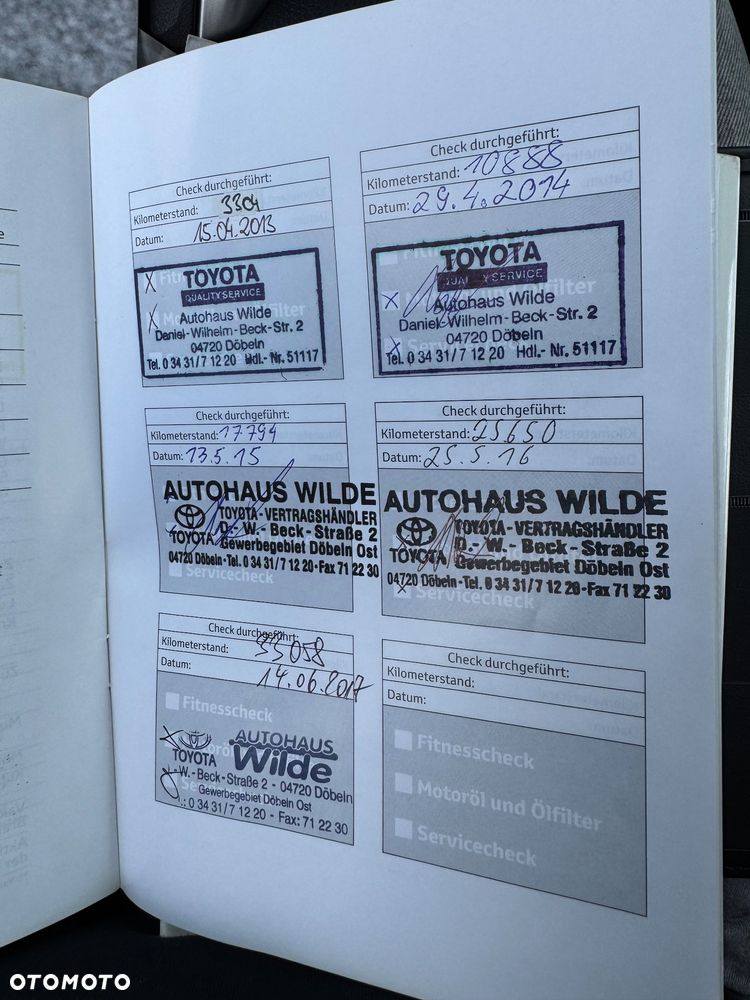 Check durchgeführt:
Kilometerstand: 3304
Datum: 15.04.2013
TOYOTA
QUALITY SERVICE
Autohaus Wilde
Daniel-Wilhelm-Beck-Str. 2
04720 Döbeln
Tel. 0 34 31/7 12 20 Hdl.- Nr. 51117
Check durchgeführt:
Kilometerstand: 10888
Datum: 29.4.2014
TOYOTA
QUALITY SERVICE
Autohaus Wilde
Daniel-Wilhelm-Beck-Str. 2
04720 Döbeln
Tel. 0 34 31/7 12 20 Hdl.- Nr. 51117
Check durchgeführt:
Kilometerstand: 17794
Datum: 13.5.15
AUTOHAUS WILDE
TOYOTA-VERTRAGSHÄNDLER
D.-W.-Beck-Straße 2
TOYOTA Gewerbegebiet Döbeln Ost
04720 Döbeln-Tel. 0 34 31/7 12 20-Fax 71 22 30
Servicecheck
Check durchgeführt:
Kilometerstand: 25650
Datum: 25.5.16
AUTOHAUS WILDE
TOYOTA-VERTRAGSHÄNDLER
D.-W.-Beck-Straße 2
TOYOTA Gewerbegebiet Döbeln Ost
04720 Döbeln-Tel. 0 34 31/7 12 20-Fax 71 22 30
Servicecheck
Check durchgeführt:
Kilometerstand: 33058
Datum: 14.06.2017
Fitnesscheck
AUTOHAUS
TOYOTA Wilde
-W.-Beck-Straße 2 - 04720 Döbeln
Gewerbegebiet Döbeln Ost
.: 0 34 31/7 12 20 - Fax: 71 22 30
Check durchgeführt:
Kilometerstand:
Datum:
Fitnesscheck
Motoröl und Ölfilter
Servicecheck
OTOMOTO